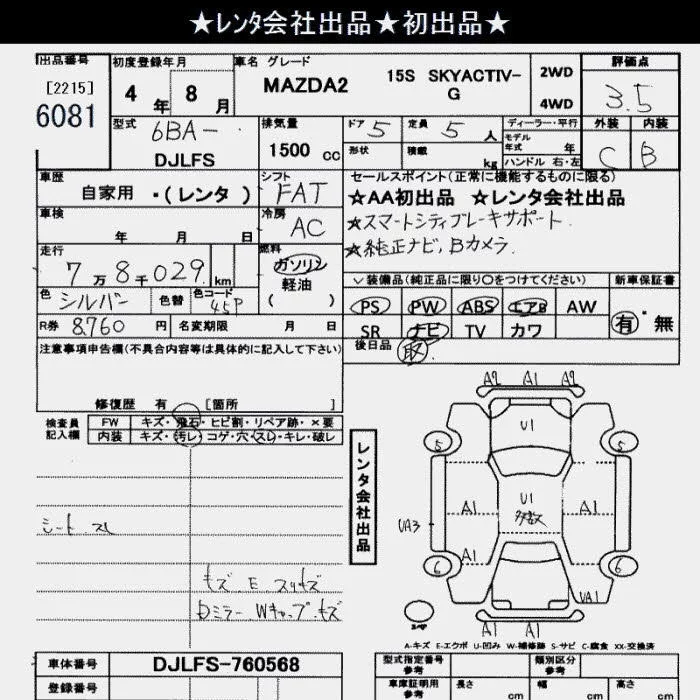 ★レンタ会社出品★初出品★
出品番号
[2215]
6081
初度登録年月
4年 8月
車名 グレード
MAZDA2 15S SKYACTIV-G
2WD
4WD
評価点
3.5
外装 内装
C B
型式
6BA-
DJLFS
排気量
1500 cc
ドア 5
定員 5 人
形状
積載 kg
ディーラー・平行
モデル
年式 年
ハンドル 右・左
車歴
自家用 ・(レンタ )
シフト
FAT
車検
年 月 日
冷房
AC
走行
7万8千029 km
燃料
ガソリン
軽油
( )
色
シルバー
色替
色コード
45P
R券 8760 円
名変期限 月 日
セールスポイント(正常に機能するものに限る)
☆AA初出品 ☆レンタ会社出品
★スマートシティブレーキサポート
★純正ナビ,Bカメラ
装備品(純正品に限り○をつけてください)
新車保証書
PS PW ABS エアB AW
SR ナビ TV カワ
有・無
後日品 取
注意事項申告欄(不具合内容等は具体的に記入して下さい)
修復歴 有 [箇所 ]
検査員
記入欄
FW キズ・飛石・ヒビ割・リペア跡・×要
内装 キズ・汚レ・コゲ・穴・スレ・キレ・破レ
シート スレ
モズ E スリキズ
Dミラー Wキャップ キズ
レンタ会社出品
A2 A1 A2
U1
5 5
A1 U1 A1
多数
UA3
A1
6 6
UA1
A1 A1
A-キズ E-エクボ U-凹み W-補修跡 S-サビ C-腐食 XX-交換済
車体番号 DJLFS-760568
登録番号
型式指定番号
参考
類別区分
参考
車庫証明用
参考
長さ cm
幅 cm
高さ cm